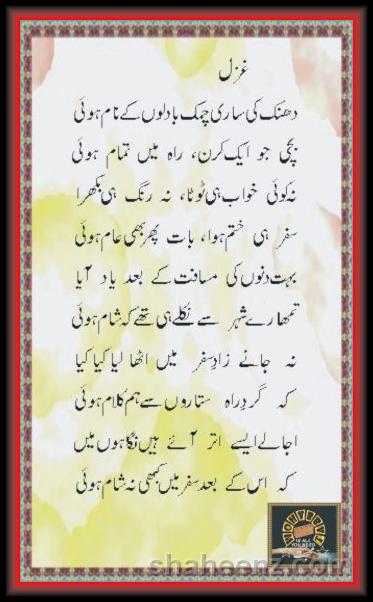 غزل
دھنک کی ساری چمک بادلوں کے نام ہوئی
بچی جو ایک کرن، راہ میں تمام ہوئی
نہ کوئی خواب ہی ٹوٹا، نہ رنگ ہی بکھرا
سفر ہی ختم ہوا، بات پھر بھی عام ہوئی
بہت دنوں کی مسافت کے بعد یاد آیا
تمھارے شہر سے نکلے ہی تھے کہ شام ہوئی
نہ جانے زادِ سفر میں اٹھا لیا کیا کیا
کہ گردِ راہ ستاروں سے ہم کلام ہوئی
اجالے ایسے اتر آئے ہیں نگاہوں میں
کہ اس کے بعد سفر میں کبھی نہ شام ہوئی
IS ALL
YOU NEED
shaheenz.com